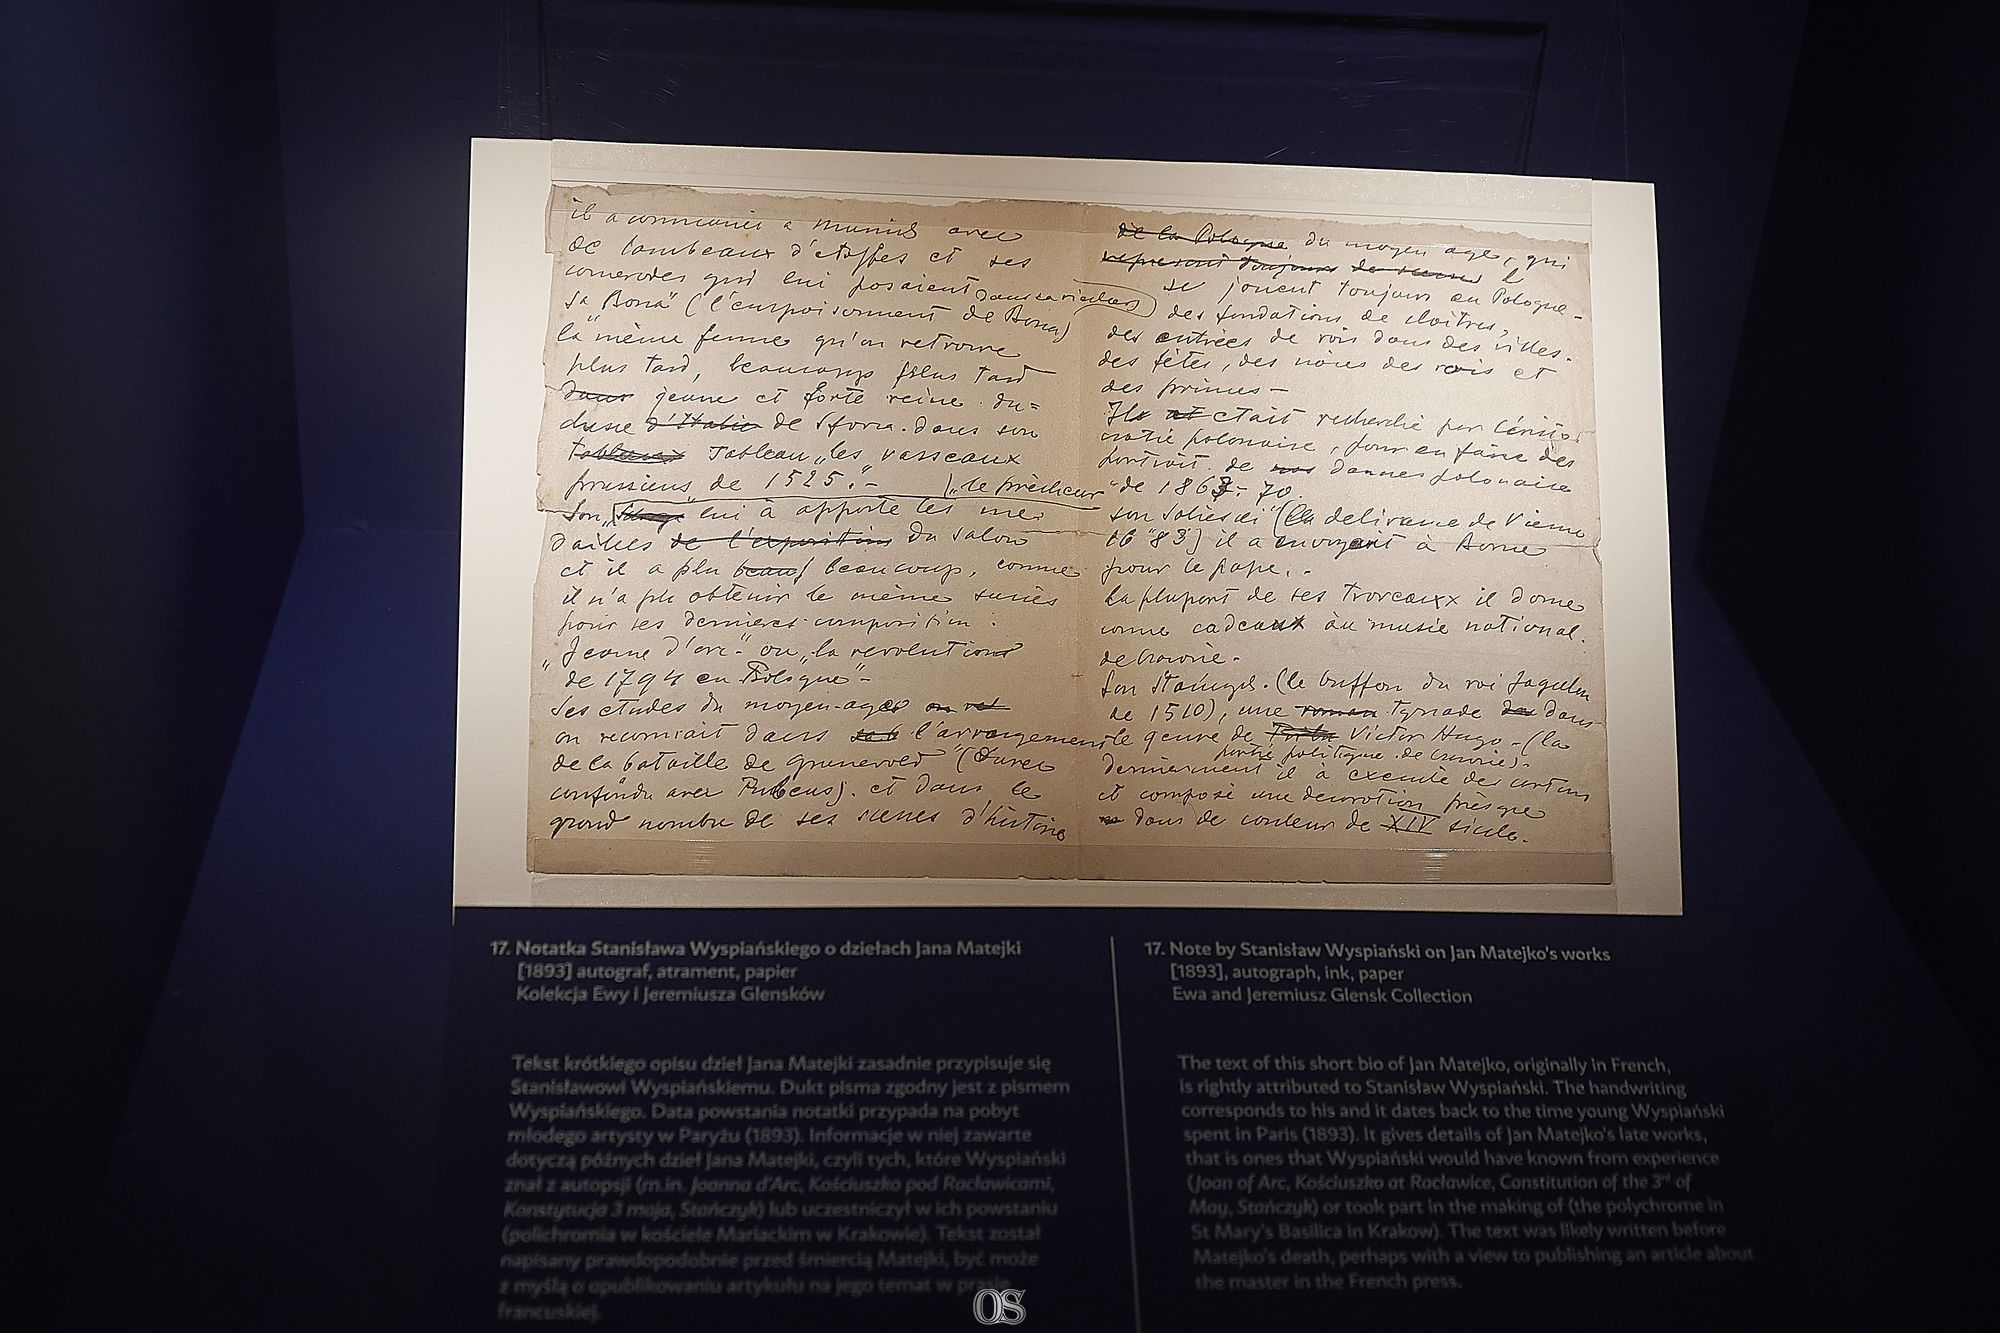 il a commencé a Munich avec
de lambeaux d'étoffes et ses
camerades qui lui posaient dans sa vieillesse
sa „Bona" (l'empoisonnement de Bona)
la même femme qu'on retrouve
plus tard, beaucoup plus tard
dans jeune et forte reine du-
chesse d'Italie de Sforza. dans son
tableaux Tableau „les vasseaux
prussiens" de 1525. -
Son „le prêcheur" lui à apporté les mé-
dailles de l'exposition du salon
et il a plu beau beaucoup, comme
il n'a plu obtenir le même succès
pour ses dernieres composition.
„Jeanne d'arc" ou „la revolution
de 1794 en Pologne" -
Ses etudes du moyen-age
on reconnait dans l'arrangement
de la bataille de Grunevald" (Durer
confondu avec Rubens). et dans le
grand nombre de ses scenes d'histoire
de la Pologne du moyen age, qui
represent toujours
se jouent toujours en Pologne -
des fondations de cloitres,
des entrées de rois dans des villes.
des fêtes, des nôces des rois et
des princes -
Il etait recherché par l'aristo-
cratie polonaise, pour en faire des
portrait. de dames polonaise
de 1863 - 70.
son Sobieski" (la delivrance de Vienne
16"83) il a envoyait à Rome
pour le pape. -
La plupart de ses travcaux il donne
comme cadeaux au musée national.
de Cracovie -
Son Stańczyk. (le buffon du roi Jagellon
de 1510), une roman tyrade dans
le genre de Victor Hugo - (la
portée politique de Cracovie) -
dernierment il à executé des cartons
et composé une decoration prèsque
dans de couleur de XIV siecle.
17. Notatka Stanisława Wyspiańskiego o dziełach Jana Matejki
[1893] autograf, atrament, papier
Kolekcja Ewy i Jeremiusza Glensków
Tekst krótkiego opisu dzieł Jana Matejki zasadnie przypisuje się
Stanisławowi Wyspiańskiemu. Dukt pisma zgodny jest z pismem
Wyspiańskiego. Data powstania notatki przypada na pobyt
młodego artysty w Paryżu (1893). Informacje w niej zawarte
dotyczą późnych dzieł Jana Matejki, czyli tych, które Wyspiański
znał z autopsji (m.in. Joanna d'Arc, Kościuszko pod Racławicami,
Konstytucja 3 maja, Stańczyk) lub uczestniczył w ich powstaniu
(polichromia w kościele Mariackim w Krakowie). Tekst został
napisany prawdopodobnie przed śmiercią Matejki, być może
z myślą o opublikowaniu artykułu na jego temat w prasie
francuskiej.
17. Note by Stanisław Wyspiański on Jan Matejko's works
[1893], autograph, ink, paper
Ewa and Jeremiusz Glensk Collection
The text of this short bio of Jan Matejko, originally in French,
is rightly attributed to Stanisław Wyspiański. The handwriting
corresponds to his and it dates back to the time young Wyspiański
spent in Paris (1893). It gives details of Jan Matejko's late works,
that is ones that Wyspiański would have known from experience
(Joan of Arc, Kościuszko at Racławice, Constitution of the 3rd of
May, Stańczyk) or took part in the making of (the polychrome in
St Mary's Basilica in Krakow). The text was likely written before
Matejko's death, perhaps with a view to publishing an article about
the master in the French press.
OS